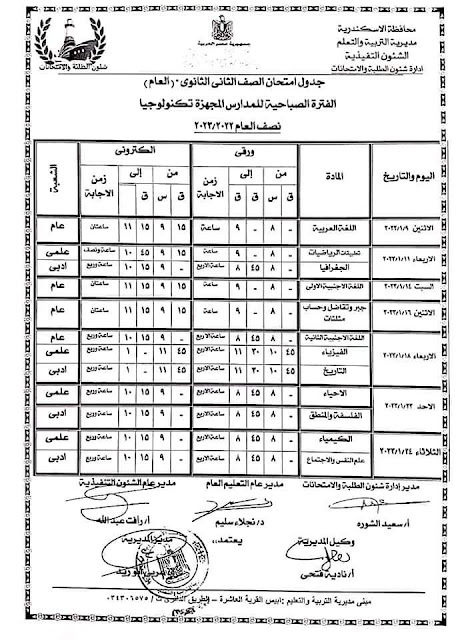 محافظة الاسكندرية
مديرية التربية والتعلم
الشئون التنفيذية
إدارة شئون الطلبة والامتحانات
جمهورية مصر العربية
شئون الطلبة والامتحانات
جدول امتحان الصف الثانى الثانوى - (العام)
الفترة الصباحية للمدارس المجهزة تكنولوجيا
نصف العام ٢٠٢٣/٢٠٢٢
اليوم والتاريخ المادة ورقى الكترونى الشعبة
من إلى زمن الاجابة من إلى زمن الاجابة
س ق س ق س ق س ق
الاثنين ٢٠٢٣/١/٩ اللغة العربية ٨ - ٩ - ساعة ٩ ١٥ ١١ ١٥ ساعتان عام
الاربعاء ٢٠٢٣/١/١١ تطبيقات الرياضيات ٨ - ٩ - ساعة ٩ ١٥ ١٠ ٤٥ ساعة ونصف علمى
الجغرافيا ٨ - ٨ ٤٥ ساعة الاربع ٩ - ١٠ ١٥ ساعة وربع ادبى
السبت ٢٠٢٣/١/١٤ اللغة الاجنبية الاولى ٨ - ٩ - ساعة ٩ ١٥ ١١ ١٥ ساعتان عام
الاثنين ٢٠٢٣/١/١٦ جبر وتفاضل وحساب مثلثات ٨ - ٩ - ساعة ٩ ١٥ ١١ ١٥ ساعتان عام
الاربعاء ٢٠٢٣/١/١٨ اللغة الاجنبية الثانية ٨ - ٨ ٤٥ ساعة الاربع ٩ - ١٠ ١٥ ساعة وربع عام
الفيزياء ١٠ ٤٥ ١١ ٣٠ ساعة الاربع ١١ ٤٥ ١ - ساعة وربع علمى
التاريخ ١٠ ٤٥ ١١ ٣٠ ساعة الاربع ١١ ٤٥ ١ - ساعة وربع ادبى
الاحد ٢٠٢٣/١/٢٢ الاحياء ٨ - ٨ ٤٥ ساعة الاربع ٩ - ١٠ ١٥ ساعة وربع علمى
الفلسفة والمنطق ٨ - ٨ ٤٥ ساعة الاربع ٩ - ١٠ ١٥ ساعة وربع ادبى
الثلاثاء ٢٠٢٣/١/٢٤ الكيمياء ٨ - ٨ ٤٥ ساعة الاربع ٩ - ١٠ ١٥ ساعة وربع علمى
علم النفس والاجتماع ٨ - ٨ ٤٥ ساعة الاربع ٩ - ١٠ ١٥ ساعة وربع ادبى
مدير إدارة شئون الطلبة والامتحانات مدير عام التعليم العام مدير عام الشئون التنفيذية
أ/ سعيد الشوره د/ نجلاء سليم أ/ رأفت عبدالله
وكيل المديرية يعتمد،، مدير المديرية
أ/ نادية فتحى
مبنى مديرية التربية والتعليم : ابيس القرية العاشرة - ت / ٠٣٤٣٠٦٥٧٥